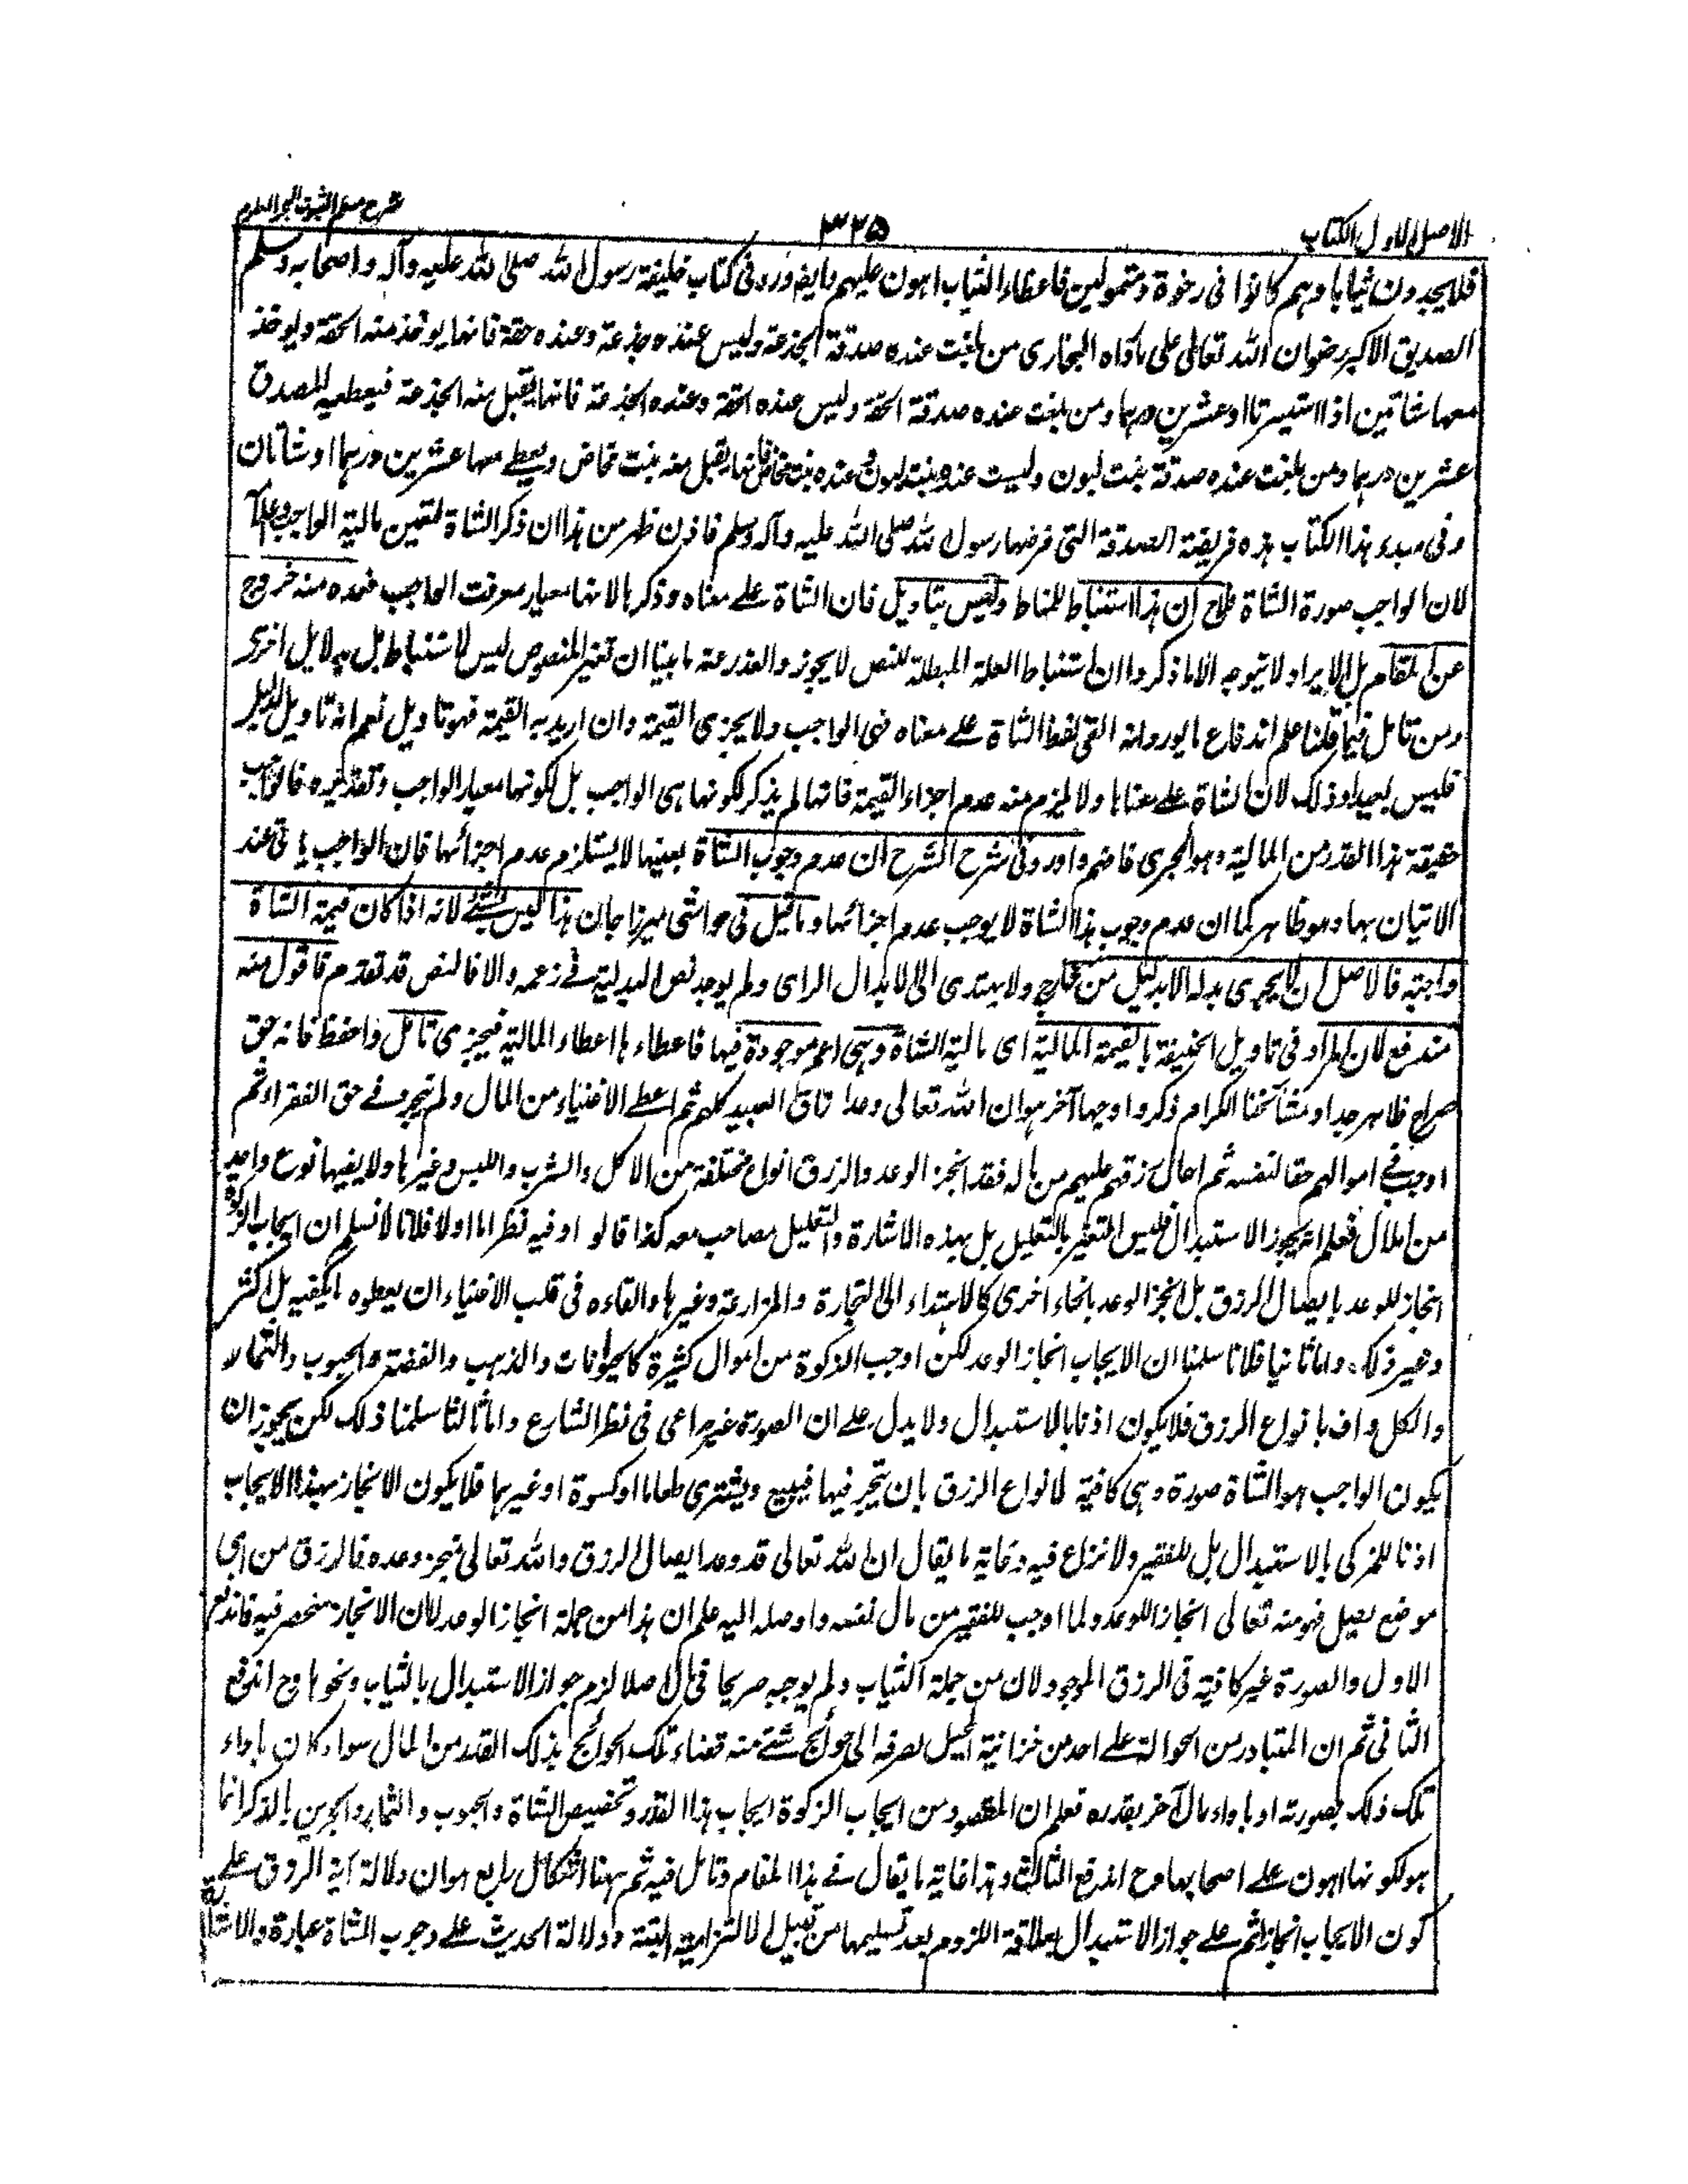 الاصل الاول الكتاب
٣٢٥
شرح مسلم الثبوت لبحر العلوم
فلا يجدون ثيابا وهم كانوا فى رخوة ومتمولين فاعطاء الثياب اهون عليهم وايضا ورد فى كتاب خليفة رسول الله صلى الله عليه وآله واصحابه وسلم
الصديق الاكبر رضوان الله تعالى على ما رواه البخارى من بلغت عنده صدقة الجذعة وليس عنده جذعة وعنده حقة فانها يوخذ منه الحقة ويوخذ
معها شاتين اذا استيسرتا او عشرين درهما ومن بلغت عنده صدقة الحقة وليس عنده الحقة وعنده الجذعة فانها يقبل منه الجذعة فيعطيه المصدق
عشرين درهما ومن بلغت عنده صدقة بنت لبون وليست عنده بنت لبون وعنده بنت مخاض فانها يقبل منه بنت مخاض ويعطى معها عشرين درهما او شاتان
وفى مبدء هذا الكتاب هذه فريضة الصدقة التى فرضها رسول لله صلى الله عليه وآله وسلم فاذن ظهر من هذا ان ذكر الشاة لتعين مالية الواجب
لان الواجب صورة الشاة ان هذا استنباط للمناط وليس بتاويل فان الشاة على معناه وذكرها لانها معيار معرفت الواجب فعده منه خروج
عن المقام بل الايراد لا يتوجه الا ما ذكروا ان استنباط العلة المبطلة للنص لا يجوز والعذر عنه ما بينا ان تغير المنصوص ليس لاستنباط بل بدلايل اخرى
ومن تامل فيما قلنا علم اندفاع ما يورد انه القى لفظ الشاة على معناه ففى الواجب ولا يجزى القيمة وان اريد به القيمة فهو تاويل نعم انه تاويل لدليل
فليس بعيدا وذلك لان الشاة على معناها ولا يلزم منه عدم اجزاء القيمة فانها لم يذكر لكونها هى الواجب بل لكونها معيار الواجب وتقديره فالواجب
حقيقة هذا القدر من المالية وهو المجرى فافهم واورد فى شرح الشرح ان عدم وجوب الشاة بعينها لا يستلزم عدم اجزائها فان الواجب ياتى عند
الاتيان بها وهو ظاهر كما ان عدم وجوب هذا الشاة لا يوجب عدم اجزائها وما قيل فى حواشى ميرزا جان هذا ليس بشئ لانه اذا كان قيمة الشاة
واجبة فالاصل ان لا يجزى بدله الا بدليل من خارج ولا يهتدى الى الابدال الراى ولم يوجد نص البدلية فى زعمه والا فالنص قد تقدم فاقول منه
مندفع لان المراد فى تاويل الحنيفة بالقيمة المالية اى مالية الشاة وهى اعم موجودة فيها فاعطاءها اعطاء المالية فيجزى تامل واحفظ فانه حق
صراح ظاهر جدا ومشائخنا الكرام ذكروا وجها آخر هو ان الله تعالى وعد ارزاق العبيد كلهم ثم اعطى الاغنياء من المال ولم يجر فى حق الفقراء ثم
اوجب فى اموالهم حقا لنفسه ثم احال رزقهم عليهم من ماله فقد انجز الوعد والرزق انواع مختلفة من الاكل والشرب واللبس وغيرها ولا يفيها نوع واحد
من المال فعلم انه يجوز الاستبدال فليس التغير بالتعليل بل بهذه الاشارة والتعليل مصاحب معه كذا قالوا وفيه نظر اما اولا فلانا لا نسلم ان ايجاب الزكوة
انجاز للوعد بايصال الرزق بل انجز الوعد بانحاء اخرى كالاهتداء الى التجارة والمزارعة وغيرها والقاءه فى قلب الاغنياء ان يعطوه ما يكفيه بل اكثر
وغير ذلك واما ثانيا فلانا سلمنا ان الايجاب انجاز الوعد لكن اوجب الزكوة من اموال كثيرة كالحيوانات والذهب والفضة والحبوب والثمار
والكل واف بانواع الرزق فلا يكون اذنا بالاستبدال ولا يدل على ان الصورة غير مراعى فى نظر الشارع واما ثالثا سلمنا ذلك لكن يجوز ان
يكون الواجب هو الشاة صورة وهى كافية لانواع الرزق بان يتجر فيها فيبيع ويشترى طعاما او كسوة او غيرهما فلا يكون الانجاز بهذا الايجاب
اذنا للمزكى بالاستبدال بل للفقير ولا نزاع فيه وغاية ما يقال ان لله تعالى قد وعد ايصال الرزق والله تعالى منجز وعده فالرزق من اى
موضع يصل فهو منه تعالى انجازا للوعد ولما اوجب للفقير من مال نفسه واوصله اليه علم ان هذا من جملة انجاز الوعد لا ان الانجاز منحصر فيه فاندفع
الاول والصورة غير كافية فى الرزق الموجود لان من جملة الثياب ولم يوجبه صريحا فى مال اصلا لزم جواز الاستبدال بالثياب ونحوها وح اندفع
الثانى ثم ان المتبادر من الحوالة على احد من خزانية المحيل لصرفه الى حوائج شتى منه قضاء تلك الحوائج بذلك القدر من المال سواء كان باداء
تلك ذلك بصورته او باداء مال آخر بقدره فعلم ان المقصود من ايجاب الزكوة ايجاب هذا القدر وتخصيص الشاة والحبوب والثمار والحجرين بالذكر انما
هو لكونها اهون على اصحابها وح اندفع الثالث وهذا غاية ما يقال فى هذا المقام وتامل فيه ثم ههنا اشكال رابع هو ان دلالة آية الرزق على
كون الايجاب انجازا ثم على جواز الاستبدال بعلاقة اللزوم بعد تسليمها من قبيل الالتزامية البتة ودلالة الحديث على وجوب الشاة عبارة والاشارة